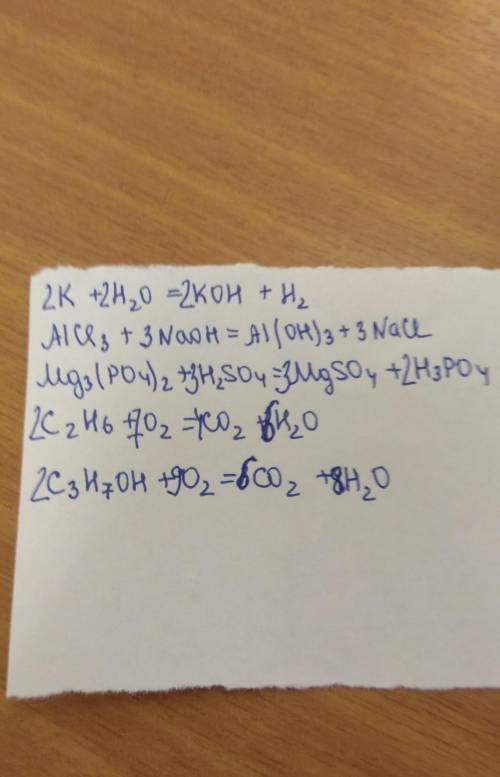 2K + 2H₂O = 2KOH + H₂
AlCl₃ + 3NaOH = Al(OH)₃ + 3NaCl
Mg₃(PO₄)₂ + 3H₂SO₄ = 3MgSO₄ + 2H₃PO₄
2C₂H₆ + 7O₂ = 4CO₂ + 6H₂O
2C₃H₇OH + 9O₂ = 6CO₂ + 8H₂O